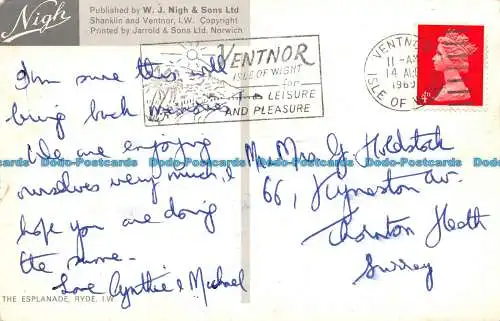 Nigh
Published by W. J. Nigh & Sons Ltd
Shanklin and Ventnor, I.W. Copyright
Printed by Jarrold & Sons Ltd. Norwich
I'm sure this will
bring back
We are enjoying
ourselves very much, &
hope you are doing
the same.
Love Cynthia & Michael
THE ESPLANADE, RYDE, I.W
VENTNOR
ISLE OF WIGHT
for
LEISURE
AND PLEASURE
VENTNOR
11-AM
14 AUG
1969
ISLE OF W
4D
Mr & Mrs G Holdstock
66, Kynaston Av.
Thornton Heath
Surrey
Dodo-Postcards Dodo-Postcards Dodo-Postcards Dodo-Postcards